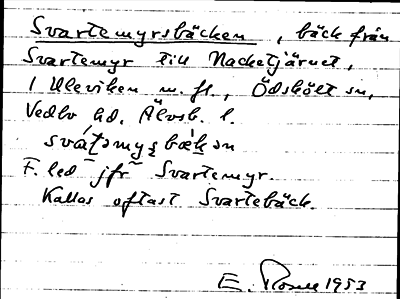 Svartemyrsbäcken, bäck från
Svartemyr till Nacketjärnet,
1 Uleviken m. fl., Ödskölt sn,
Vedbo hd. Älvsb. l.
svát̩əmyʂbækən
F. led jfr Svartemyr.
Kallas oftast Svartebäck.
E. 1953